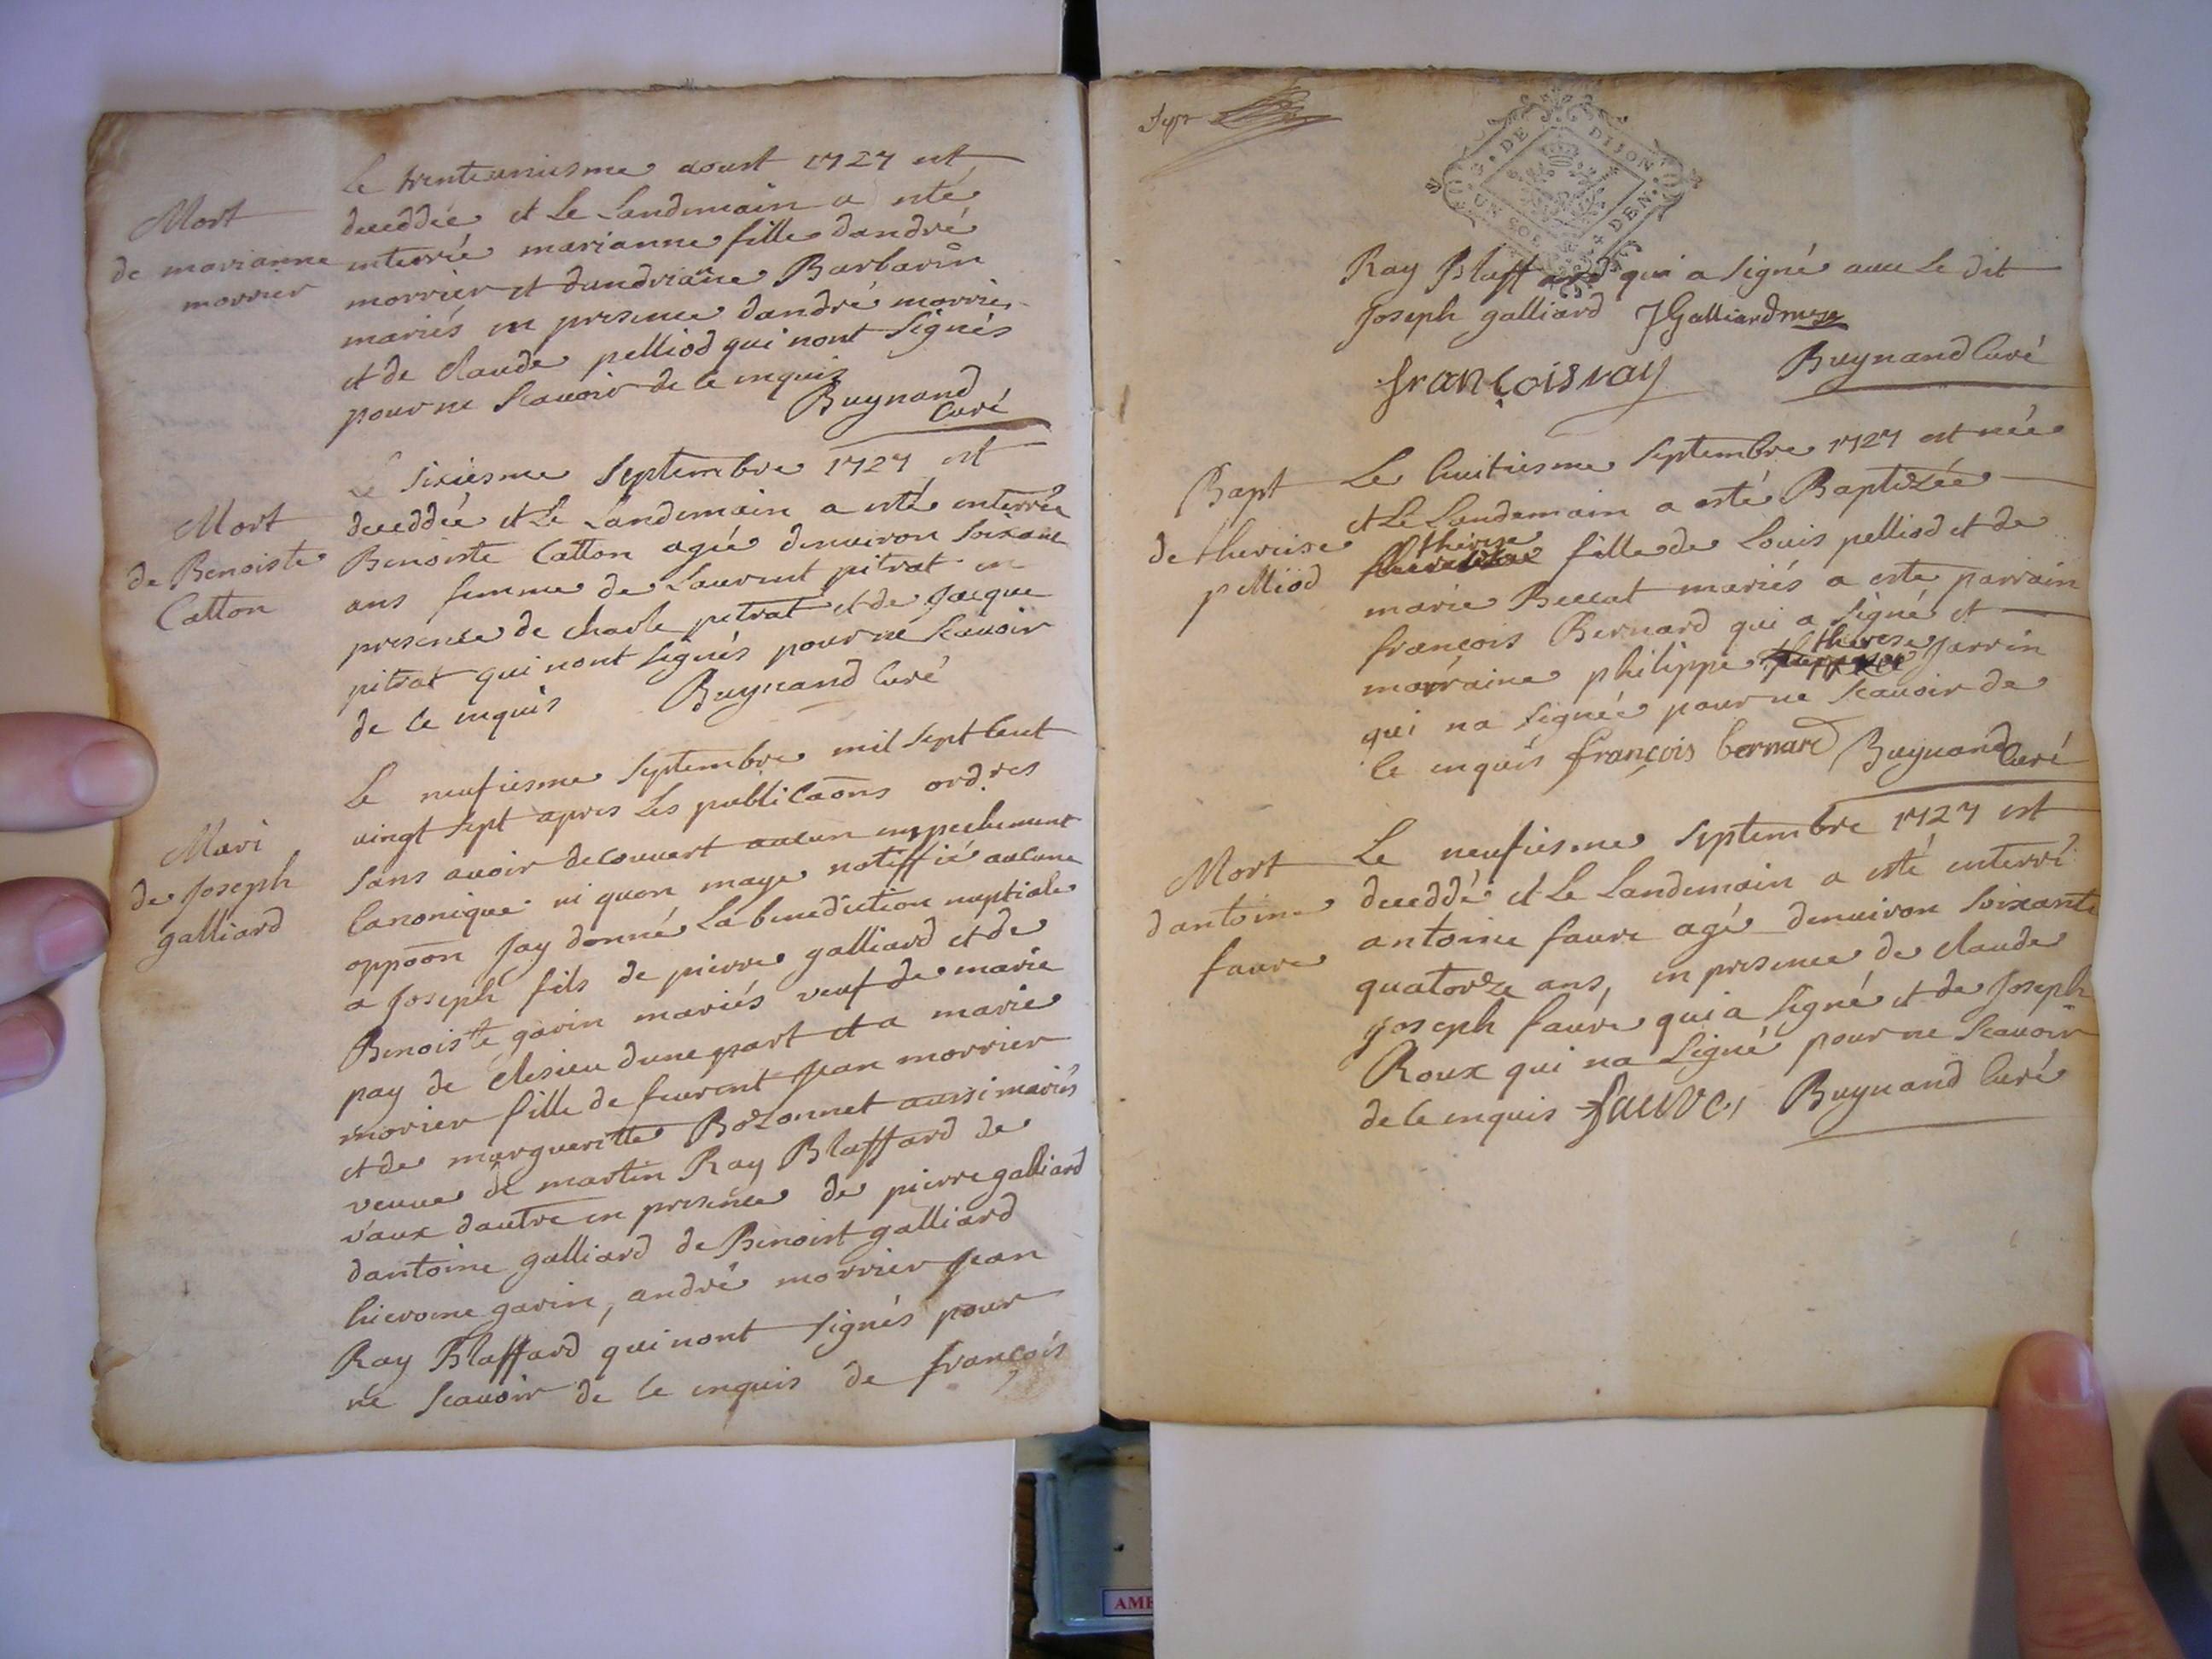 Mort
de marianne
morrier
Le trenteuniesme aoust 1727 est
deceddée et Le Landemain a esté
enterrée marianne fille dandré
morrier et dandriane Barbarin
mariés en presence dandré morrier
et de claude pelliod qui nont Signés
pour ne Scauoir de ce enquis
Buynand
Curé
Mort
de Benoiste
Catton
Le Sixiesme Septembre 1727 est
deceddée et Le Landemain a esté enterrée
Benoiste Catton agée denuiron Soixante
ans femme de Laurent pitrat en
presence de charle pitrat et de Jacque
pitrat qui nont Signés pour ne Scauoir
de ce enquis Buynand Curé
Mari
de Joseph
galliard
Le neufiesme Septembre mil Sept Cent
vingt Sept apres Les publicaons ord.res
Sans auoir decouuert aucun empechement
Canonique ni quon maye notiffié aucune
oppoon Jay donné La benediction nuptiale
a Joseph fils de pierre galliard et de
Benoiste gavin mariés veuf de marie
pay de dune part et a marie
morier fille de feurent Jean morrier
et de margueritte Bozonnet aussi mariés
veuue de martin Ray Blaffard de
vaux dautre en presence de pierre galliard
dantoine galliard de Benoist galliard
hierome gavin, andré morrier Jean
Ray Blaffard qui nont Signés pour
ne Scauoir de ce enquis de françois
Sept
DE DIJON
UN SOL
DEN.
Ray Blaffard qui a Signé auec Le dit
Joseph galliard JGalliard
françois ray Buynand Curé
Bapt
de thereise
pelliod
Le huitiesme Septembre 1727 est née
et Le Landemain a esté Baptizée
therese
fille de Louis pelliod et de
marie Beccat mariés a esté parrain
françois Bernard qui a Signé et
marraine philippe therese Jarrin
qui na Signée pour ne Scauoir de
ce enquis françois bernard Buynand Curé
Mort
dantoine
faure
Le neufiesme Septembre 1727 est
deceddé et Le Landemain a esté enterré
antoine faure agé denuiron Soixante
quatorze ans, en presence de claude
Joseph faure qui a Signé et de Joseph
Roux qui na Signé pour ne Scauoir
de ce enquis fauve, Buynand Curé
AME